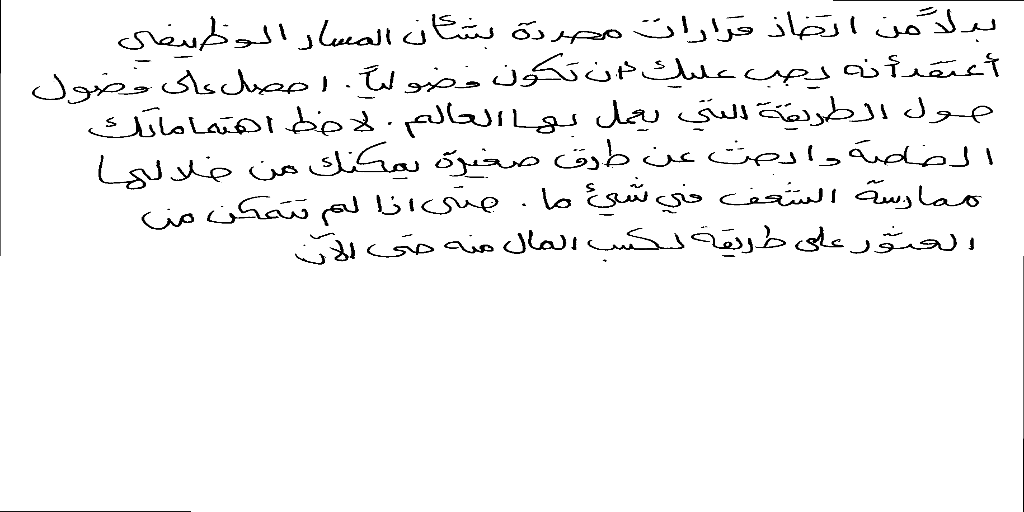 بدلاً من اتخاذ قرارات محددة بشأن المسار الوظيفي
أعتقد أنه يجب عليك ان تكون فضولياً. احصل على فضول
حول الطريقة التي يعمل بها العالم. لاحظ اهتماماتك
الخاصة وابحث عن طرق صغيرة يمكنك من خلالها
ممارسة الشغف في شيئ ما. حتى اذا لم تتمكن من
العثور على طريقة لكسب المال منه حتى الآن